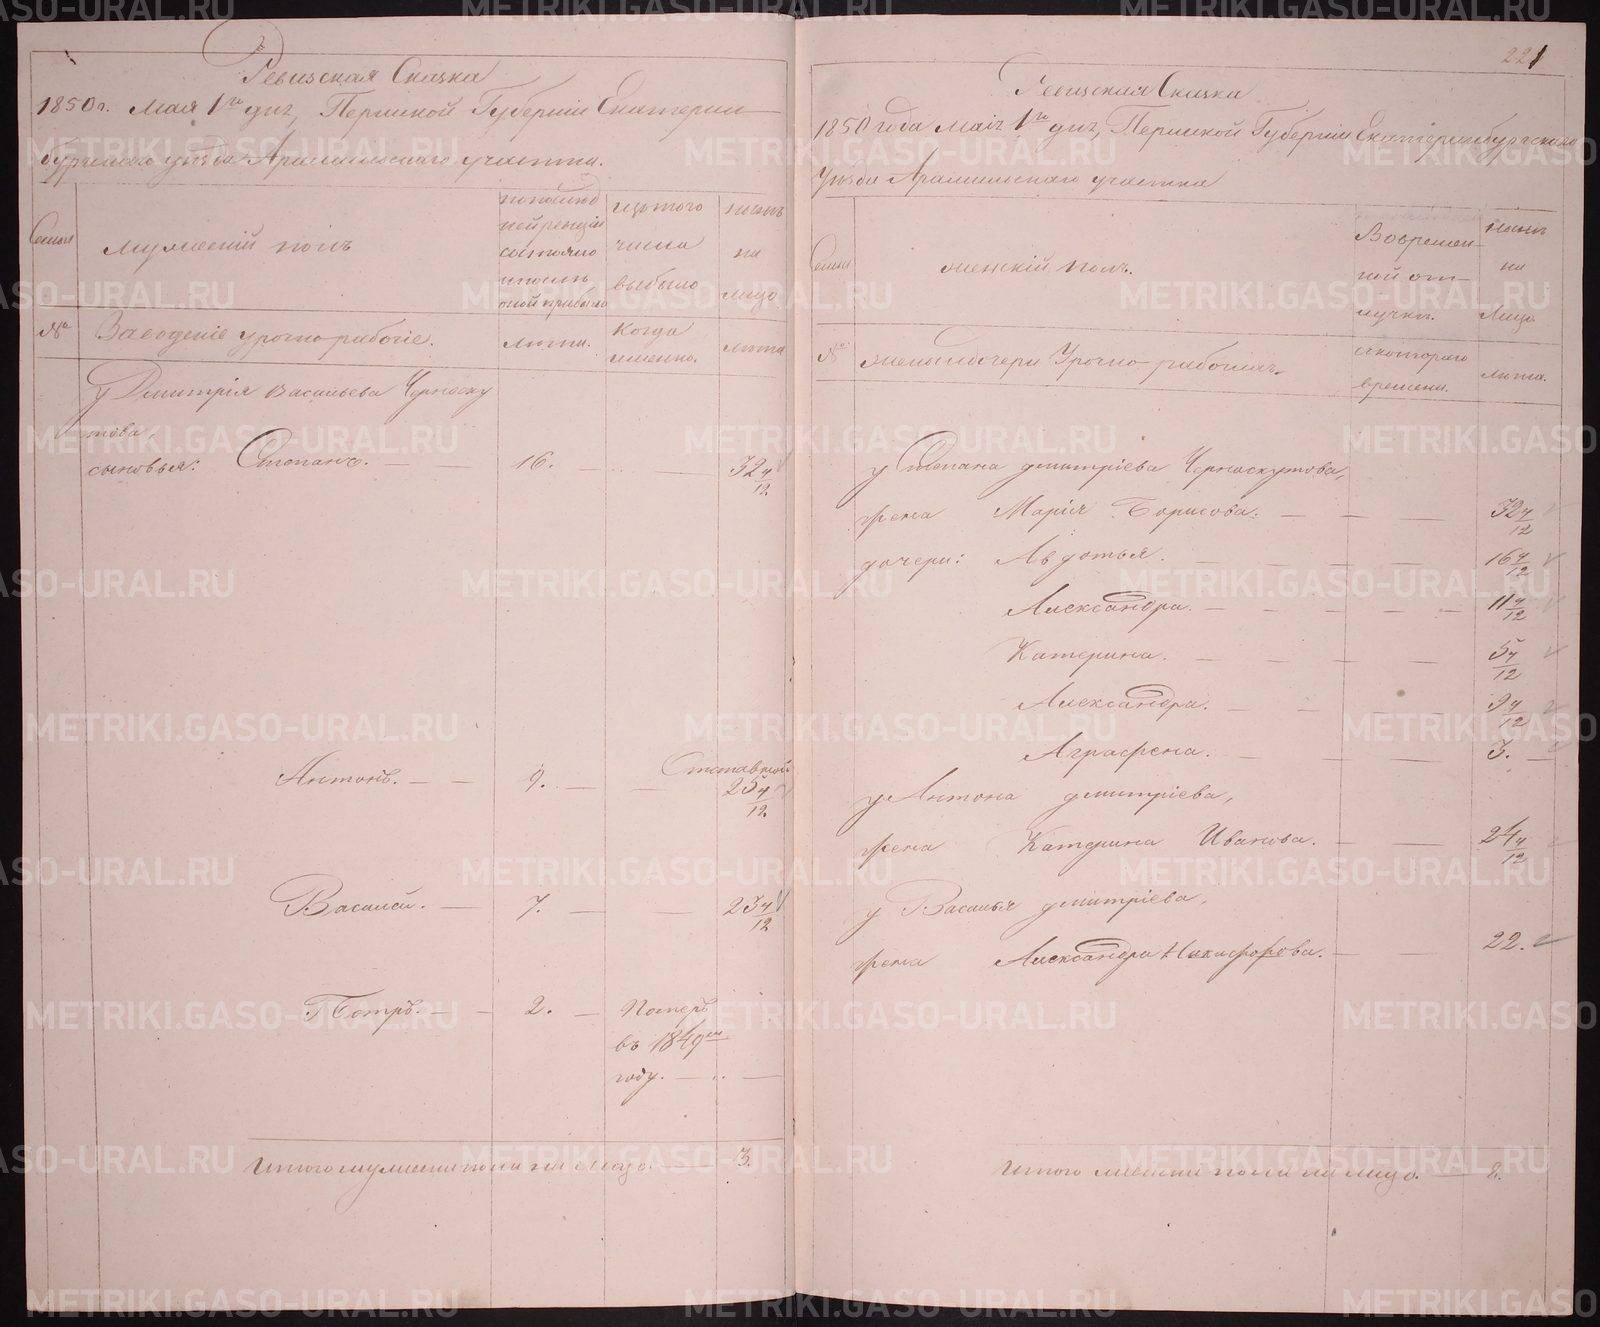 Ревизская Сказка
1850 г. Мая 1го дня, Пермской Губерніи Екатерин
бургскаго уезда Арамильскаго участка.
Семьи
мужескій полъ
попослед
ней ревизіи
состояло
и после
той прибыло
изътого
числа
выбыло
ныне
на
лицо
№
Заводскіе урочно-рабочіе.
лета.
Когда
именно.
лета
у Дмитрія Васильева Черноску
това,
сыновья: Степанъ. — — 16. — — 32 4/12
Антонъ. — — 9. — — Отставной
25 4/12
Василей. — 7. — — 23 4/12
Петръ. — — 2. — Померъ
въ 1849мъ
году. — —
Итого мужеска пола на лицо — 3.
221
Ревизская Сказка
1850 года маія 1го дня, Пермской Губерніи Екатеринбургскаго
Уезда Арамильскаго участка
Семьи
женскій полъ.
Вовремен-
ной от-
лучке.
ныне
на
Лицо
№
жены и дочери Урочно-рабочихъ.
скотораго
времени.
лета.
у Степана дмитріева Черноскутова,
жена Марія Борисова. — — — 32 4/12
дочери: Авдотья. — — — 16 4/12
Александра. — — — 11 4/12
Катерина. — — — 5 4/12
Александра. — — — 9 4/12
Аграфена. — — — 3.
у Антона дмитріева,
жена Катерина Иванова. — — 24 4/12
у Василья дмитріева,
жена Александра Никифорова. — — 22.
Итого женска пола на лицо. — 8.
METRIKI.GASO-URAL.RU